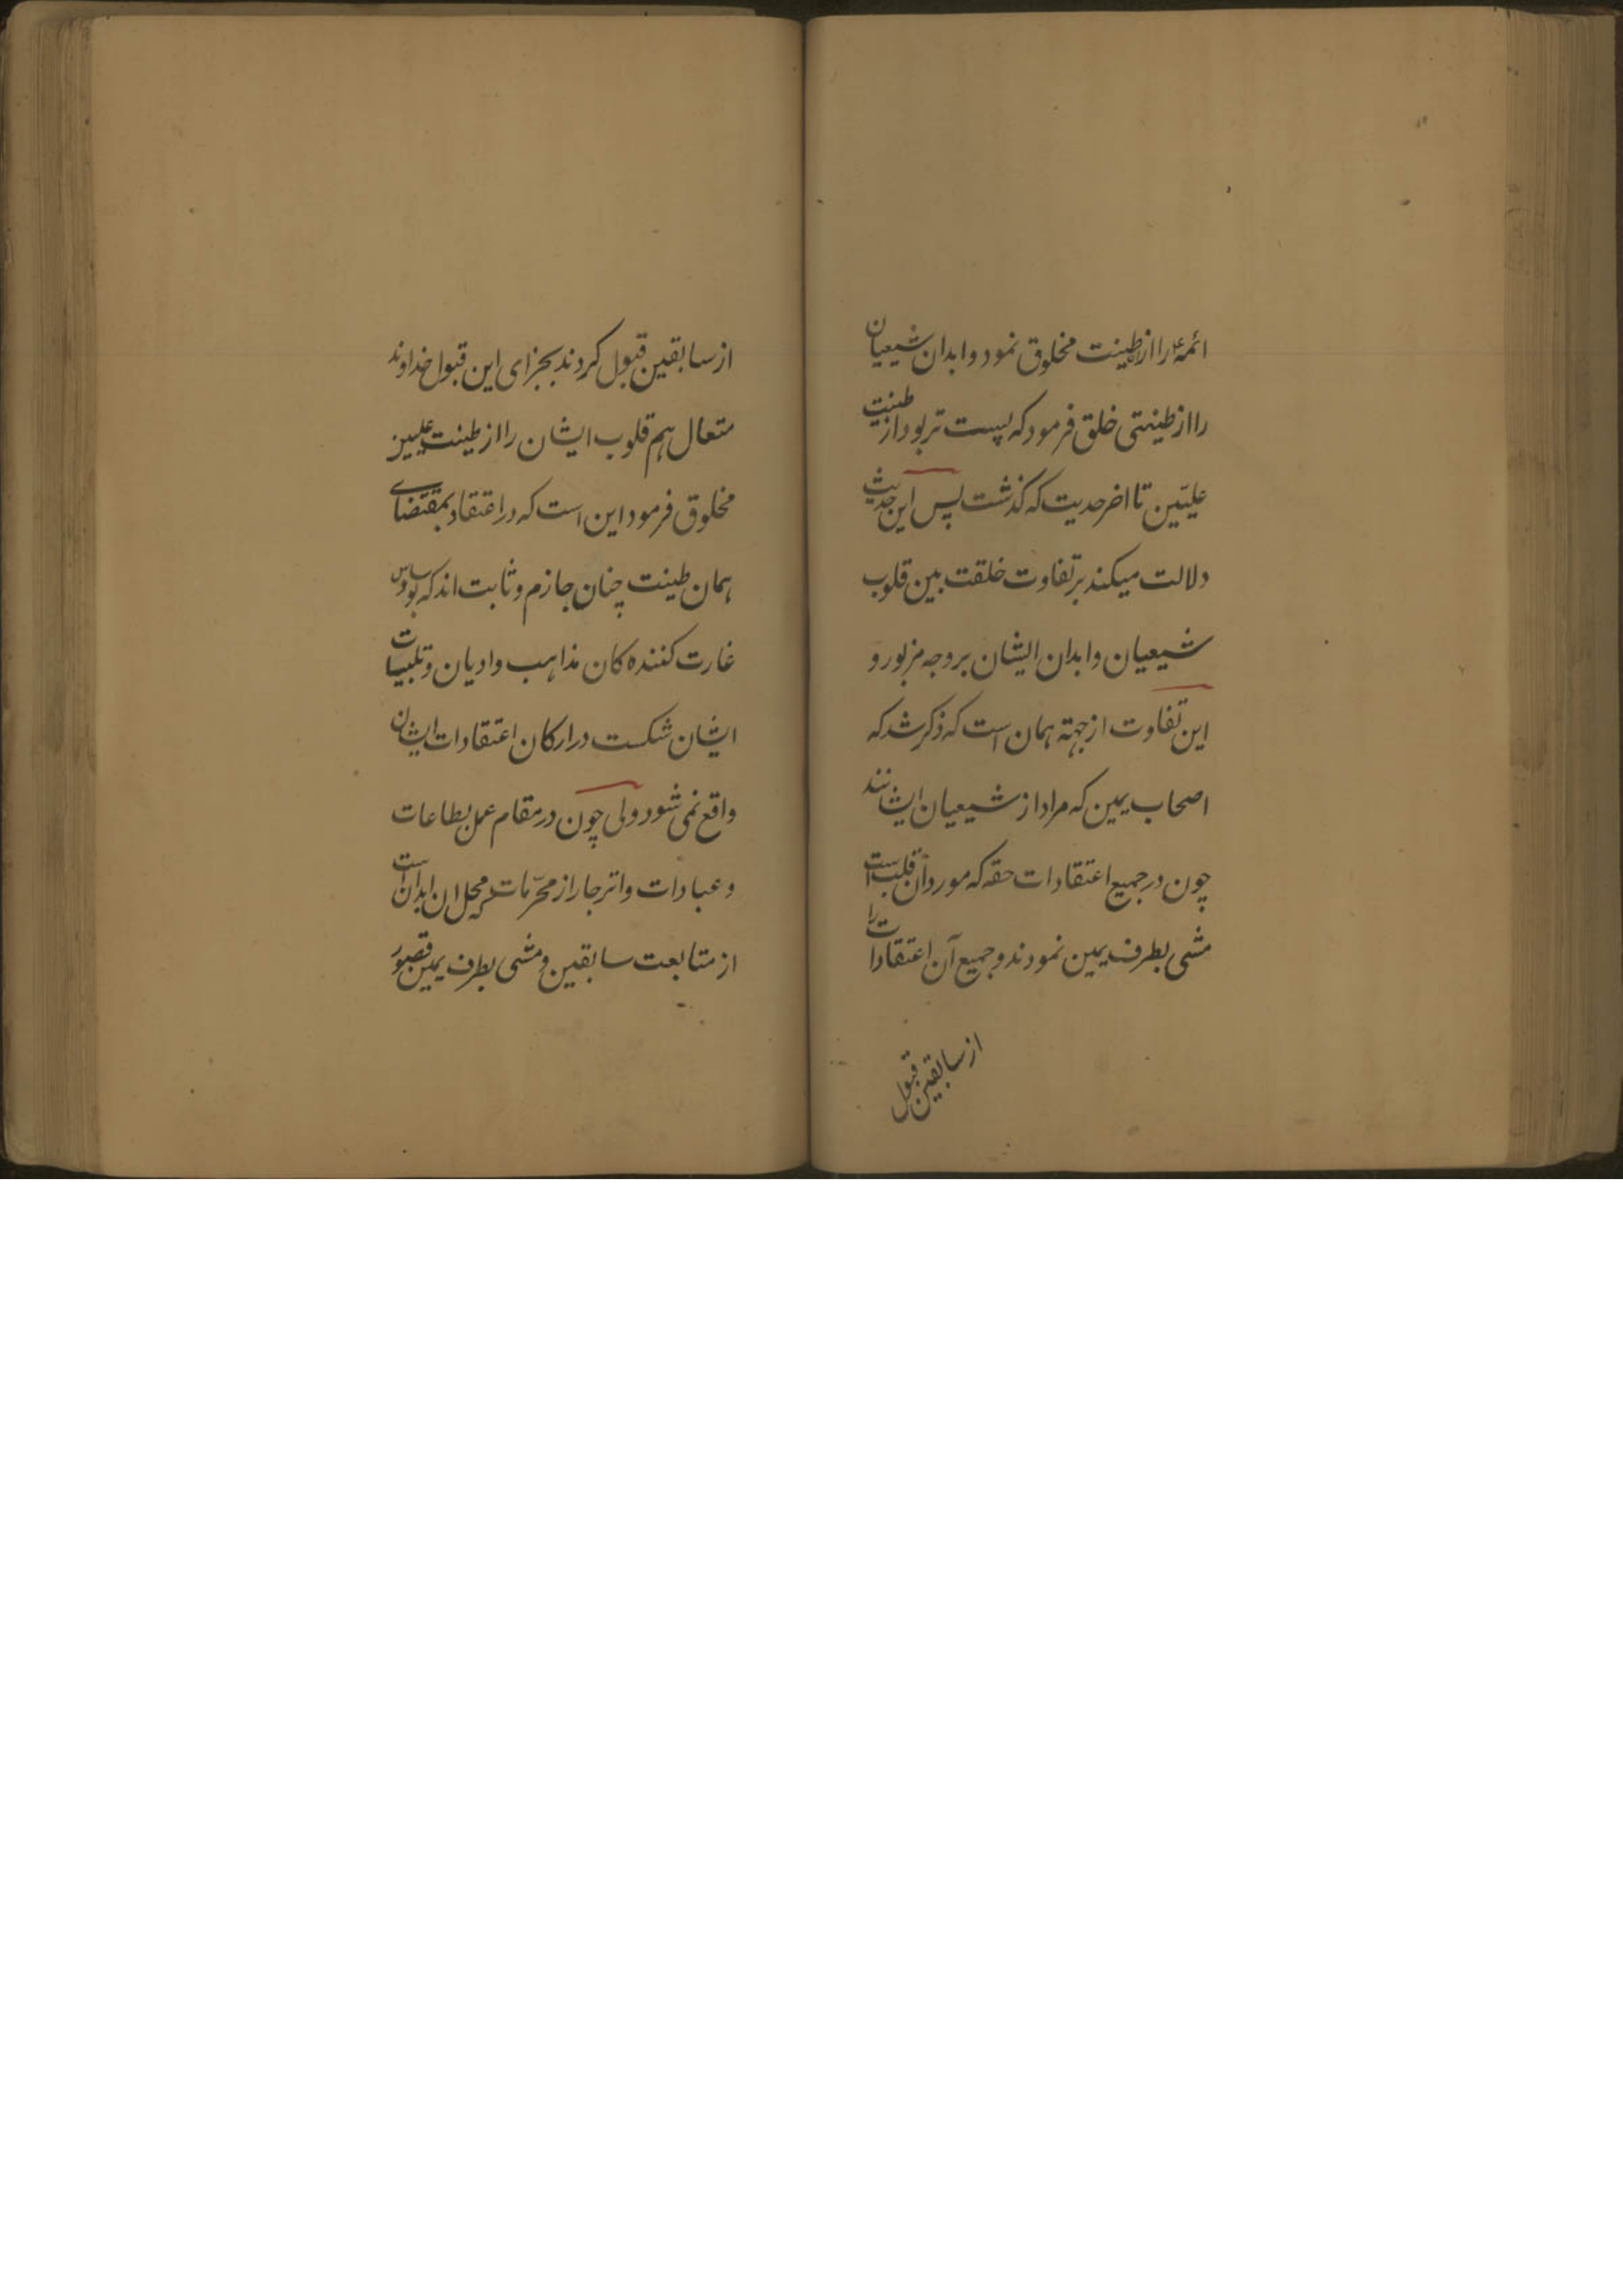 ائمهٔ ع را از طینت مخلوق نمود و ابدان شیعیان
را از طینتی خلق فرمود که پست تر بود از طینت
علیّین تا اخر حدیت که گذشت پس این حدیث
دلالت میکند بر تفاوت خلقت بین قلوب
شیعیان و ابدان ایشان بر وجه مزبور و
این تفاوت از جهة همان است که ذکر شد که
اصحاب یمین که مراد از شیعیان ایشانند
چون در جمیع اعتقادات حقه که مورد آن قلب است
مشی بطرف یمین نمودند و جمیع آن اعتقادات را
از سابقین قبول
از سابقین قبول کردند بجزای این قبول خداوند
متعال هم قلوب ایشان را از طینت علیین
مخلوق فرمود این است که در اعتقاد بمقتضای
همان طینت چنان جازم و ثابت اند که بوساوس
غارت کننده کان مذاهب و ادیان و تلبیسات
ایشان شکست در ارکان اعتقادات ایشان
واقع نمی شود ولی چون در مقام عمل بطاعات
و عبادات و انزجار از محرّمات که محل ان ابدان است
از متابعت سابقین و مشی بطرف یمین قصور